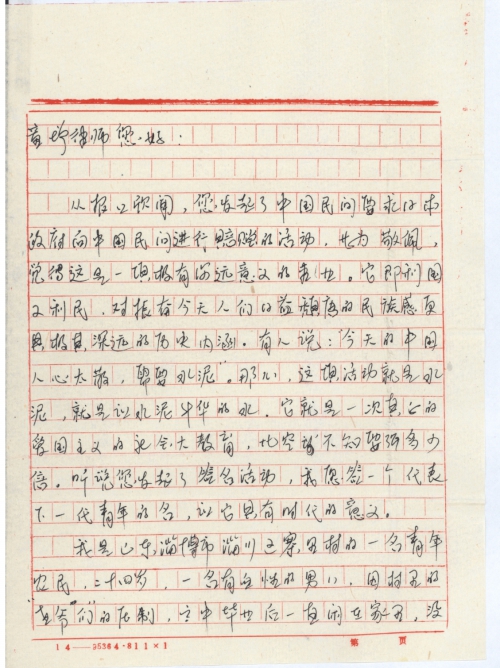 童增律师您好：
从报上欣闻，您发起了中国民间要求日本
政府向中国民间进行赔赏的活动，尤为敬佩，
觉得这是一填极有深远意义的事业。它即利国
又利民，对振奋今天人们日益颓唐的民族感更
具极其深远的历史内涵。有人说：“今天的中国
人心太散，需要水泥”。那么，这填活动就是水
泥，就是让水泥升华的水。它就是一次真正的
爱国主义的社会大教育，比空谈不知要强多少
倍。听说您发起了签名活动，我愿签一个代表
下一代青年的名，让它具有时代的意义。
我是山东淄博市淄川区寨里村的一名青年
农民，二十四岁，一名有血性的男儿，因村里的
们”的压制，高中毕业后一直闲在家里，没
14—95364·811×1 第 页